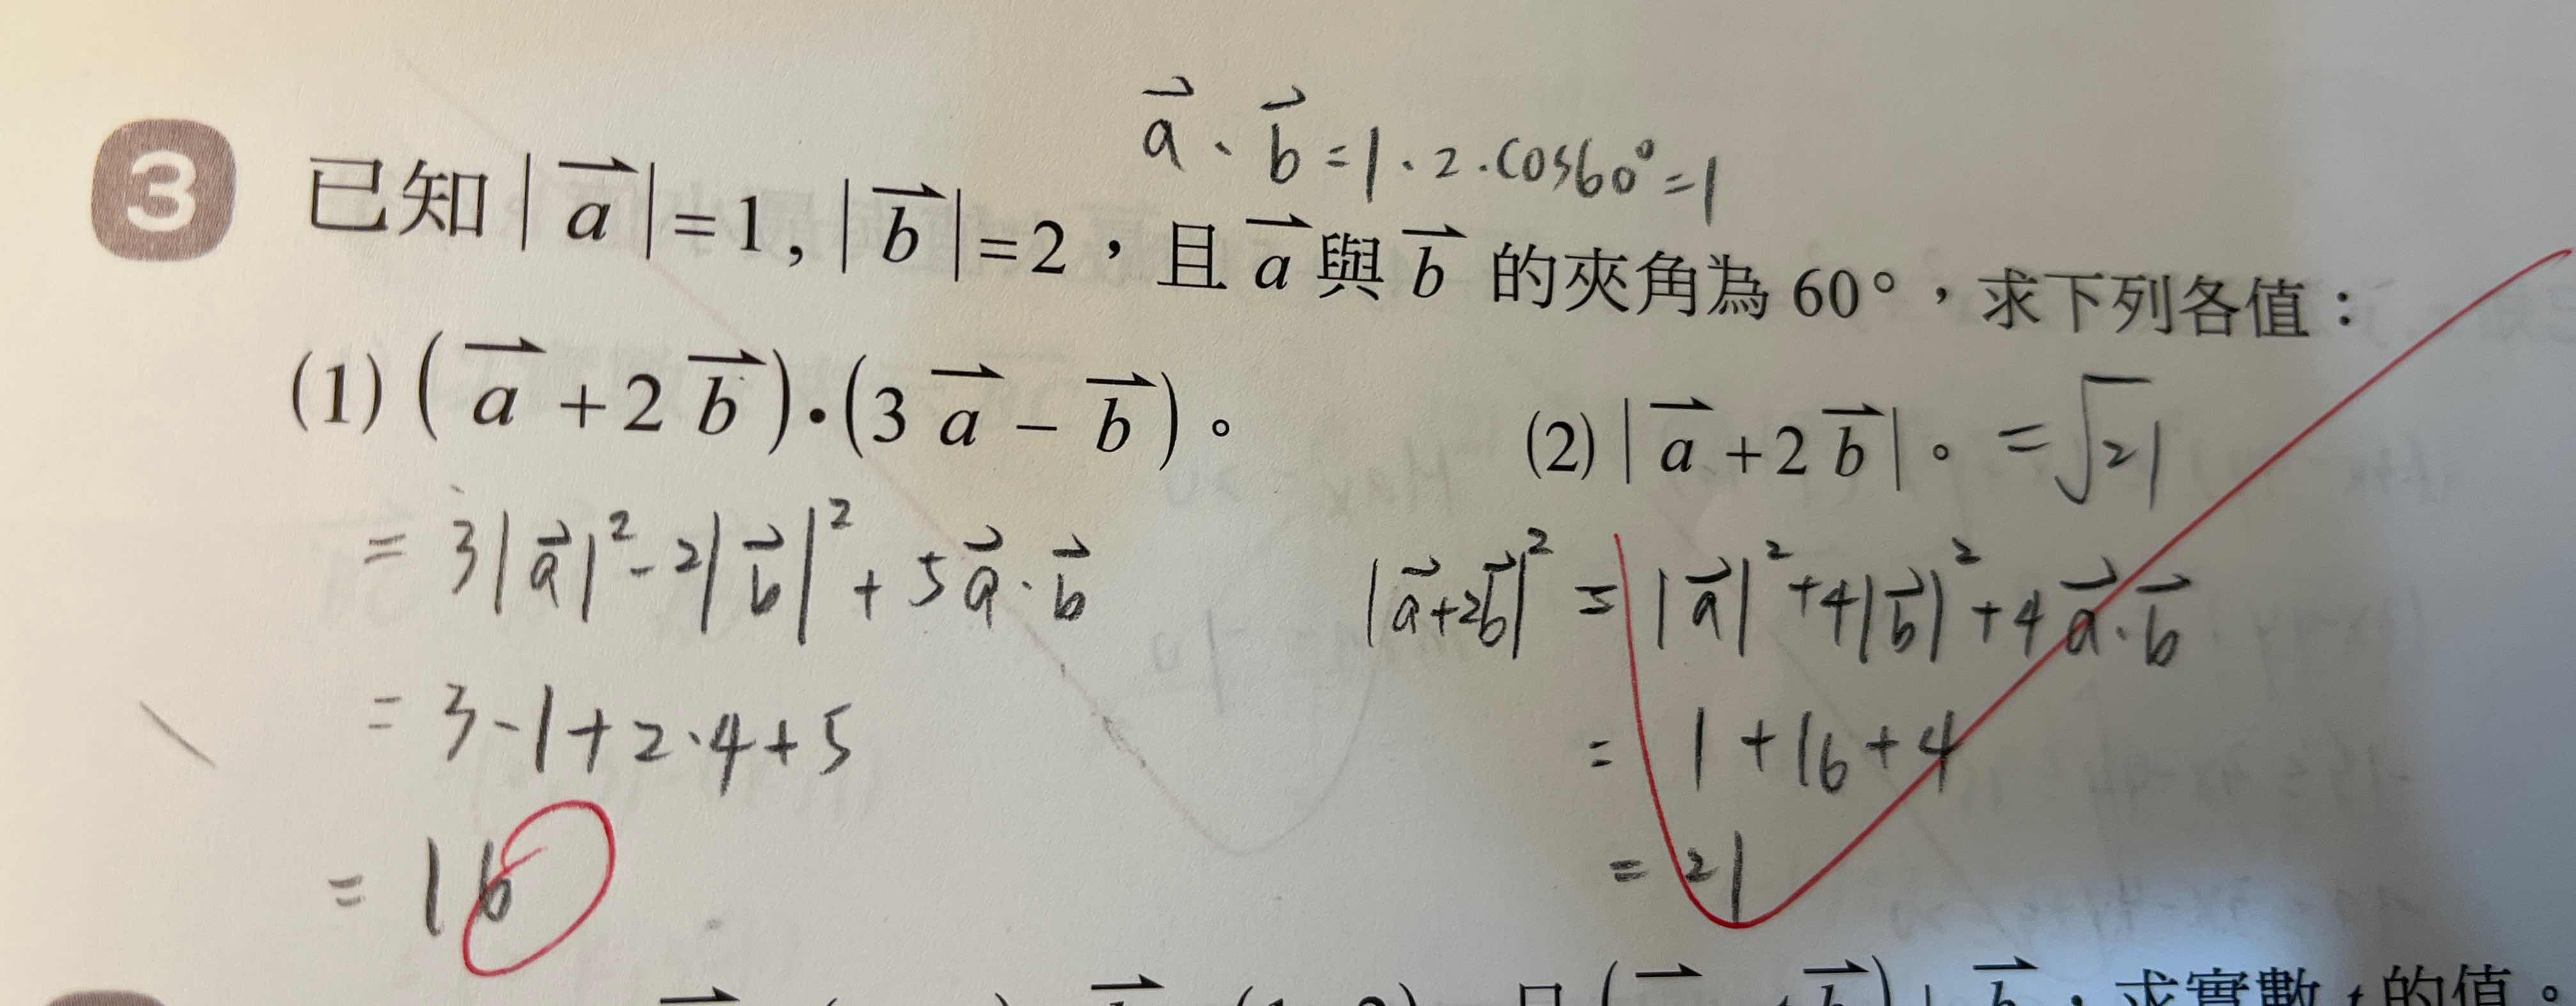 a⃗ · b⃗ = 1 · 2 · cos60° = 1
3 已知 |a⃗| = 1, |b⃗| = 2，且 a⃗ 與 b⃗ 的夾角為 60°，求下列各值：
(1) (a⃗ + 2b⃗)·(3a⃗ − b⃗)。
= 3|a⃗|² - 2|b⃗|² + 5a⃗·b⃗
= 3·1 + 2·4 + 5
= 16
(2) |a⃗ + 2b⃗|。 = √21
|a⃗+2b⃗|² = |a⃗|² + 4|b⃗|² + 4a⃗·b⃗
= 1 + 16 + 4
= 21
求實數 t 的值。